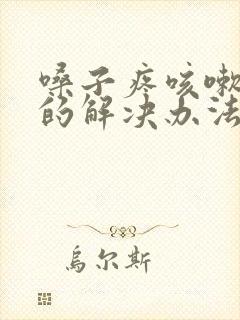 嗓子疼咳嗽
的解决办法
烏尔斯